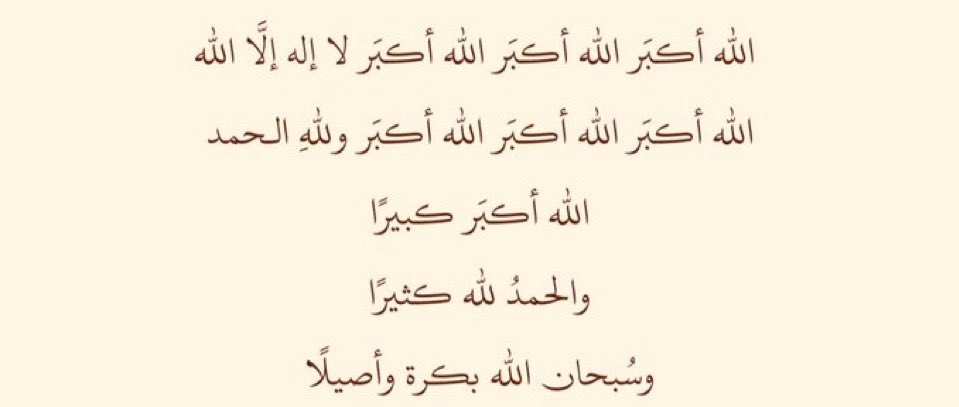 الله أكبَر الله أكبَر الله أكبَر لا إله إلَّا الله
الله أكبَر الله أكبَر الله أكبَر وللهِ الحمد
الله أكبَر كبيرًا
والحمدُ لله كثيرًا
وسُبحان الله بكرة وأصيلًا